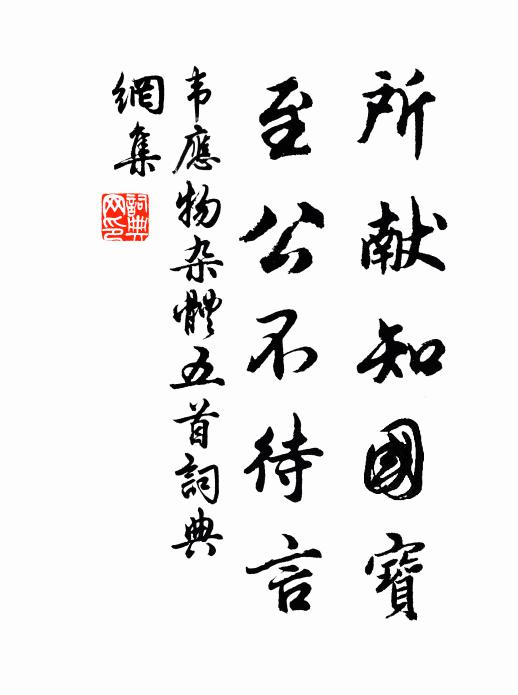 所献知國寶
至公不待言
韦應物杂體五首詞典
網集
詞典
网印